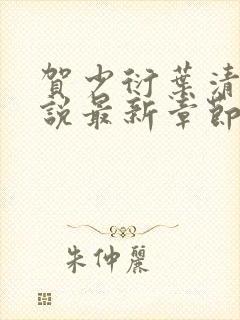 賀少衍葉清
說最新章節
朱仲麗